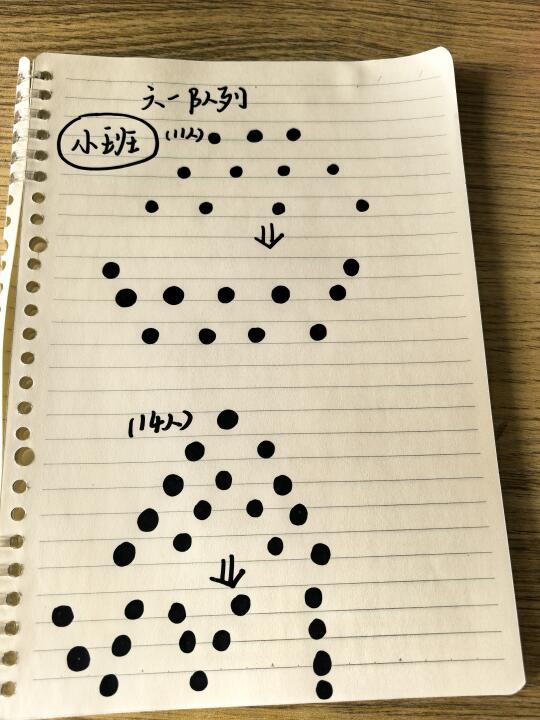 六一队列
小班 (11人)
(14人)